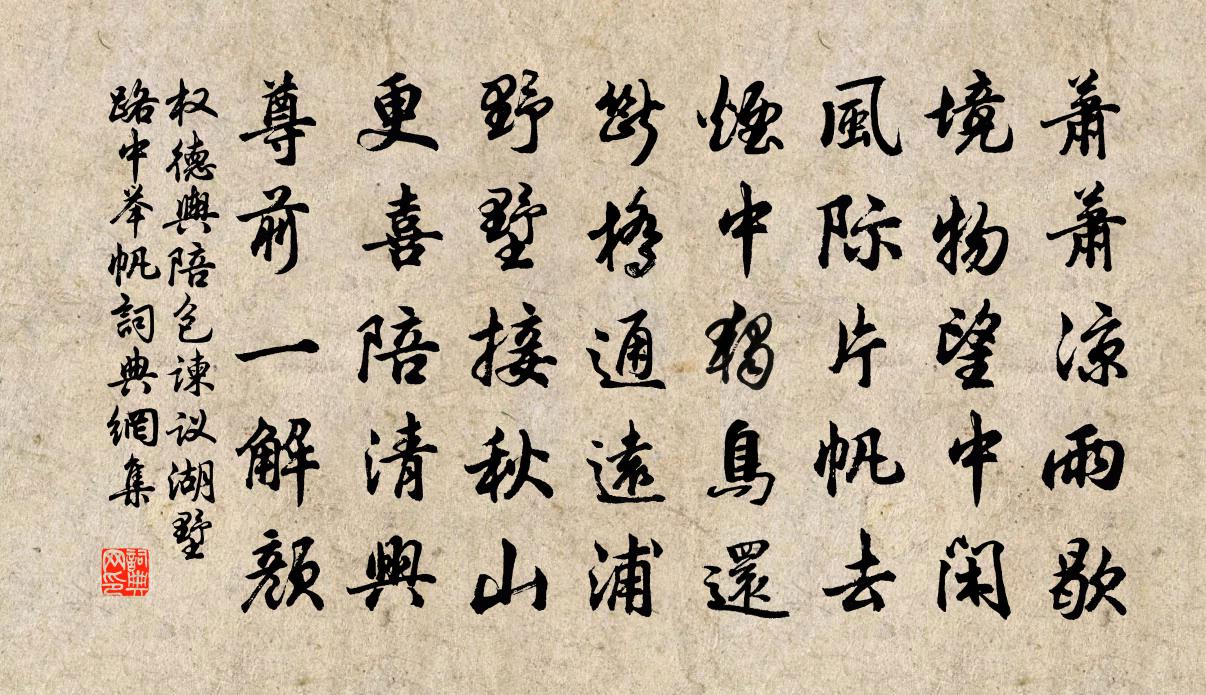 蕭蕭涼雨歇
境物望中闲
風际片帆去
煙中獨鳥還
斷橋通遠浦
野墅接秋山
更喜陪清興
尊前一解顏
权德輿陪包諫议湖墅
路中举帆詞典網集
詞典网印